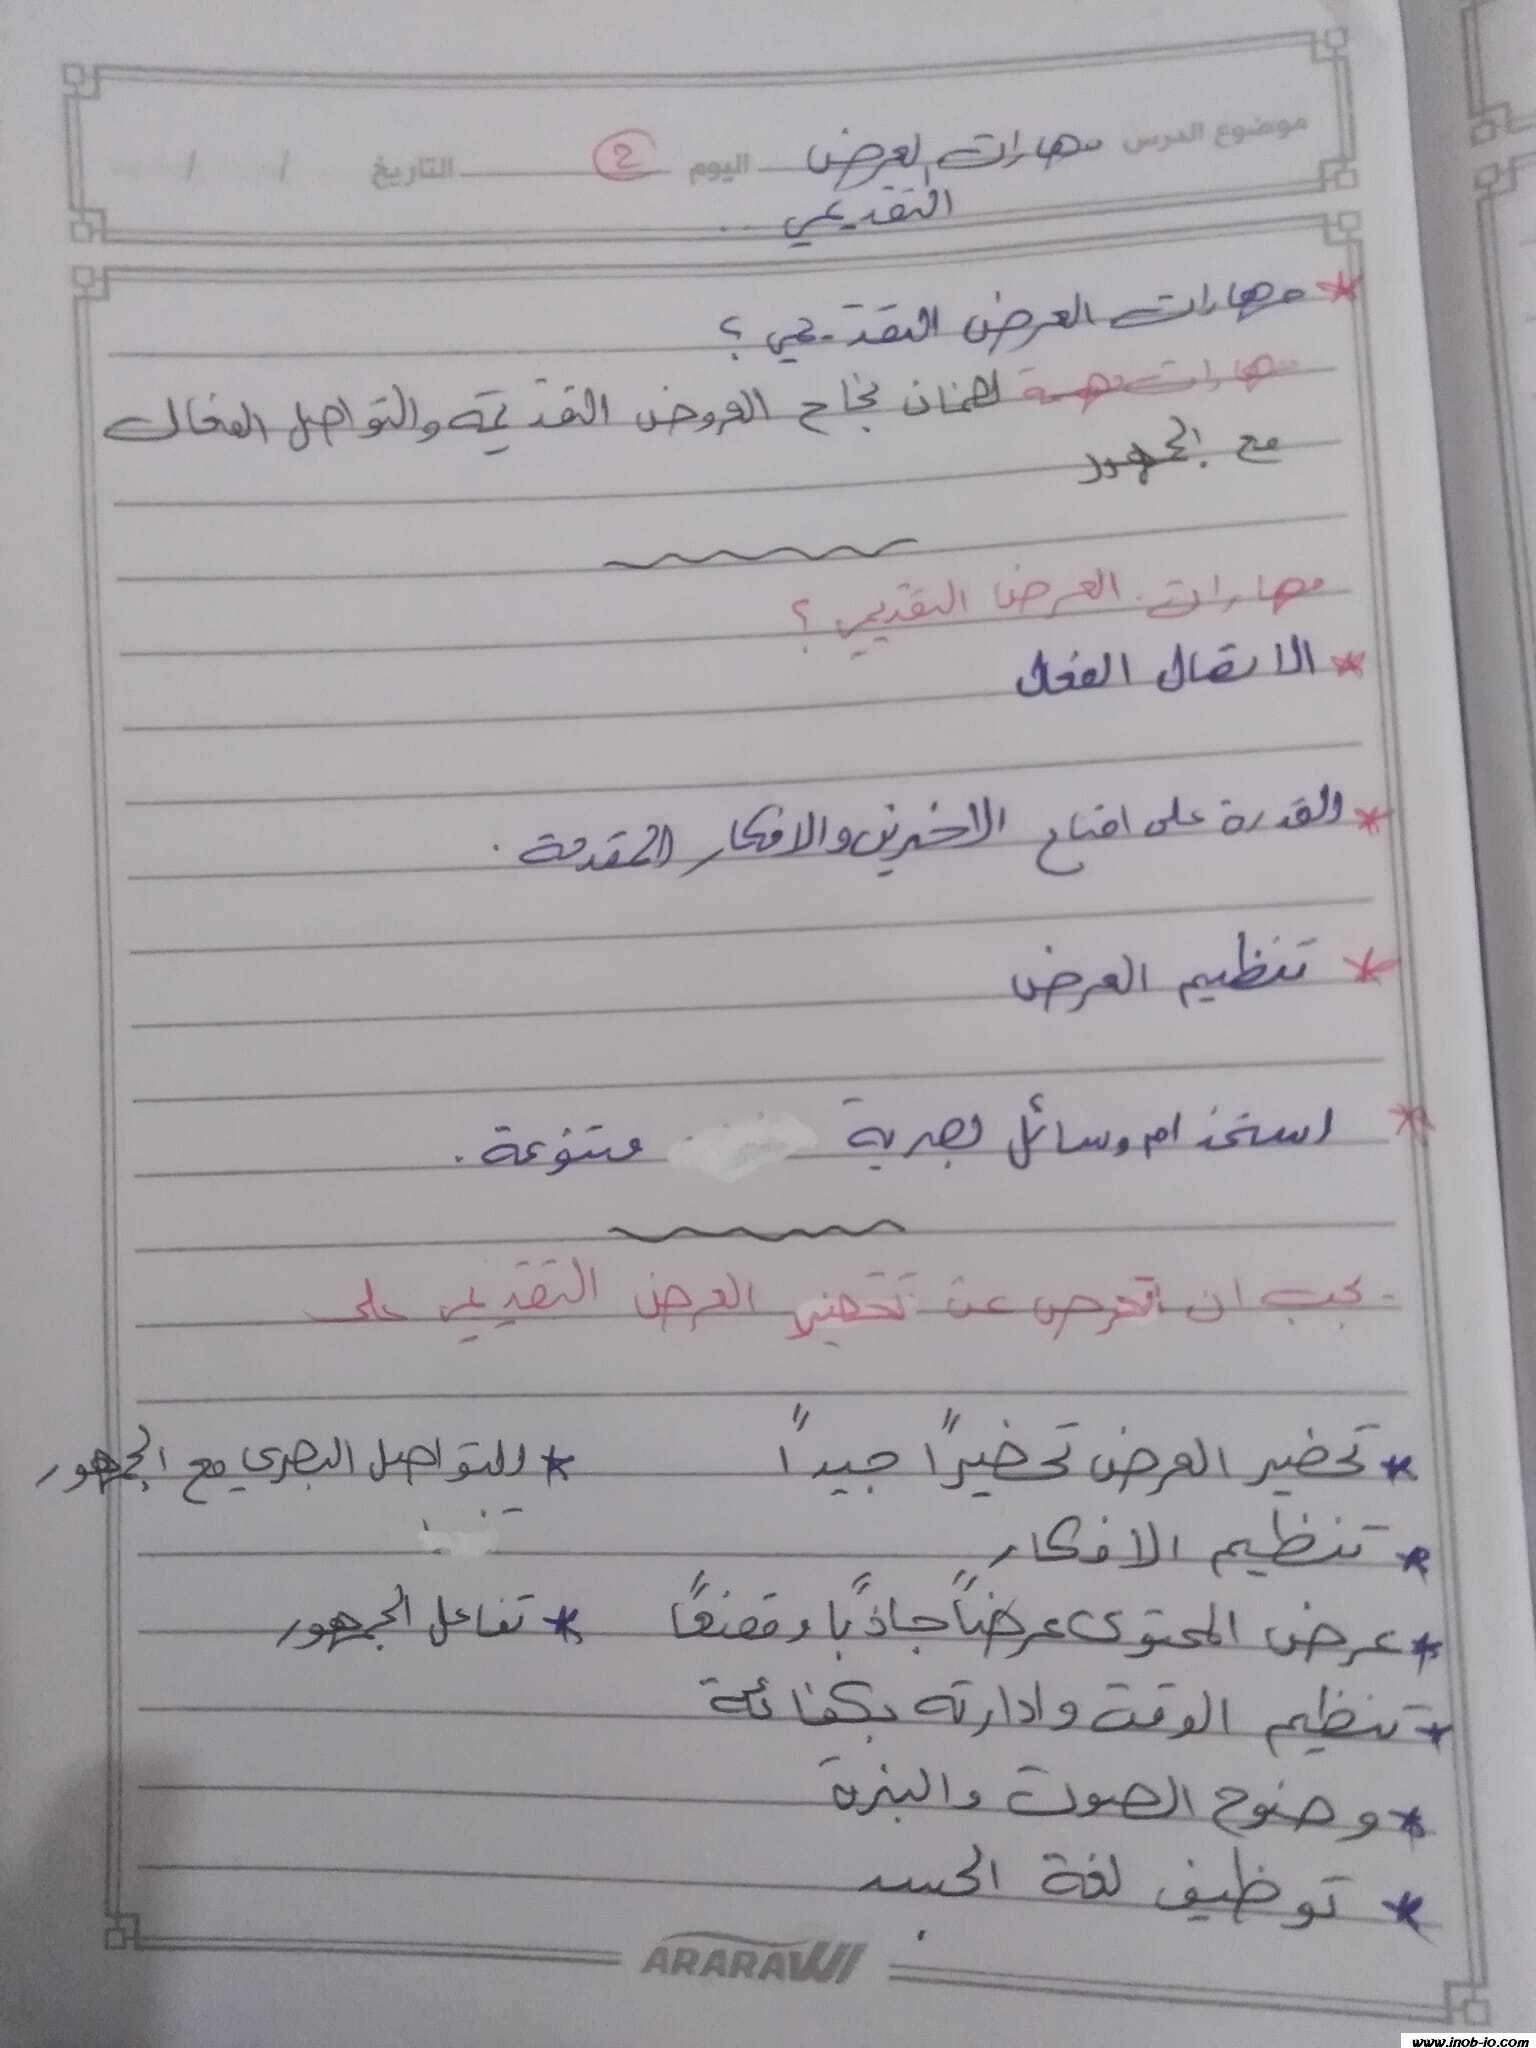 موضوع الدرس مهارات العرض اليوم 2 التاريخ / /
التقديمي ..
* مهارات العرض التقديمي ؟
مهارات مهمة لضمان نجاح العروض التقديمية والتواصل الفعال
مع الجمهور
مهارات العرض التقديمي ؟
* الاتصال الفعال
* القدرة على اقناع الاخرين والافكار المقدمة .
* تنظيم العرض
* استخدام وسائل بصرية متنوعة .
- يجب ان تحرص عن تحضير العرض التقديمي على
* تحضير العرض تحضيراً جيداً * التواصل البصري مع الجمهور
* تنظيم الافكار
* عرض المحتوى عرضاً جاذباً ومقنعاً * تفاعل الجمهور
* تنظيم الوقت وادارته بكفائة
* وضوح الصوت والنبرة
* توظيف لغة الجسد
ARARAWI
www.inob-jo.com